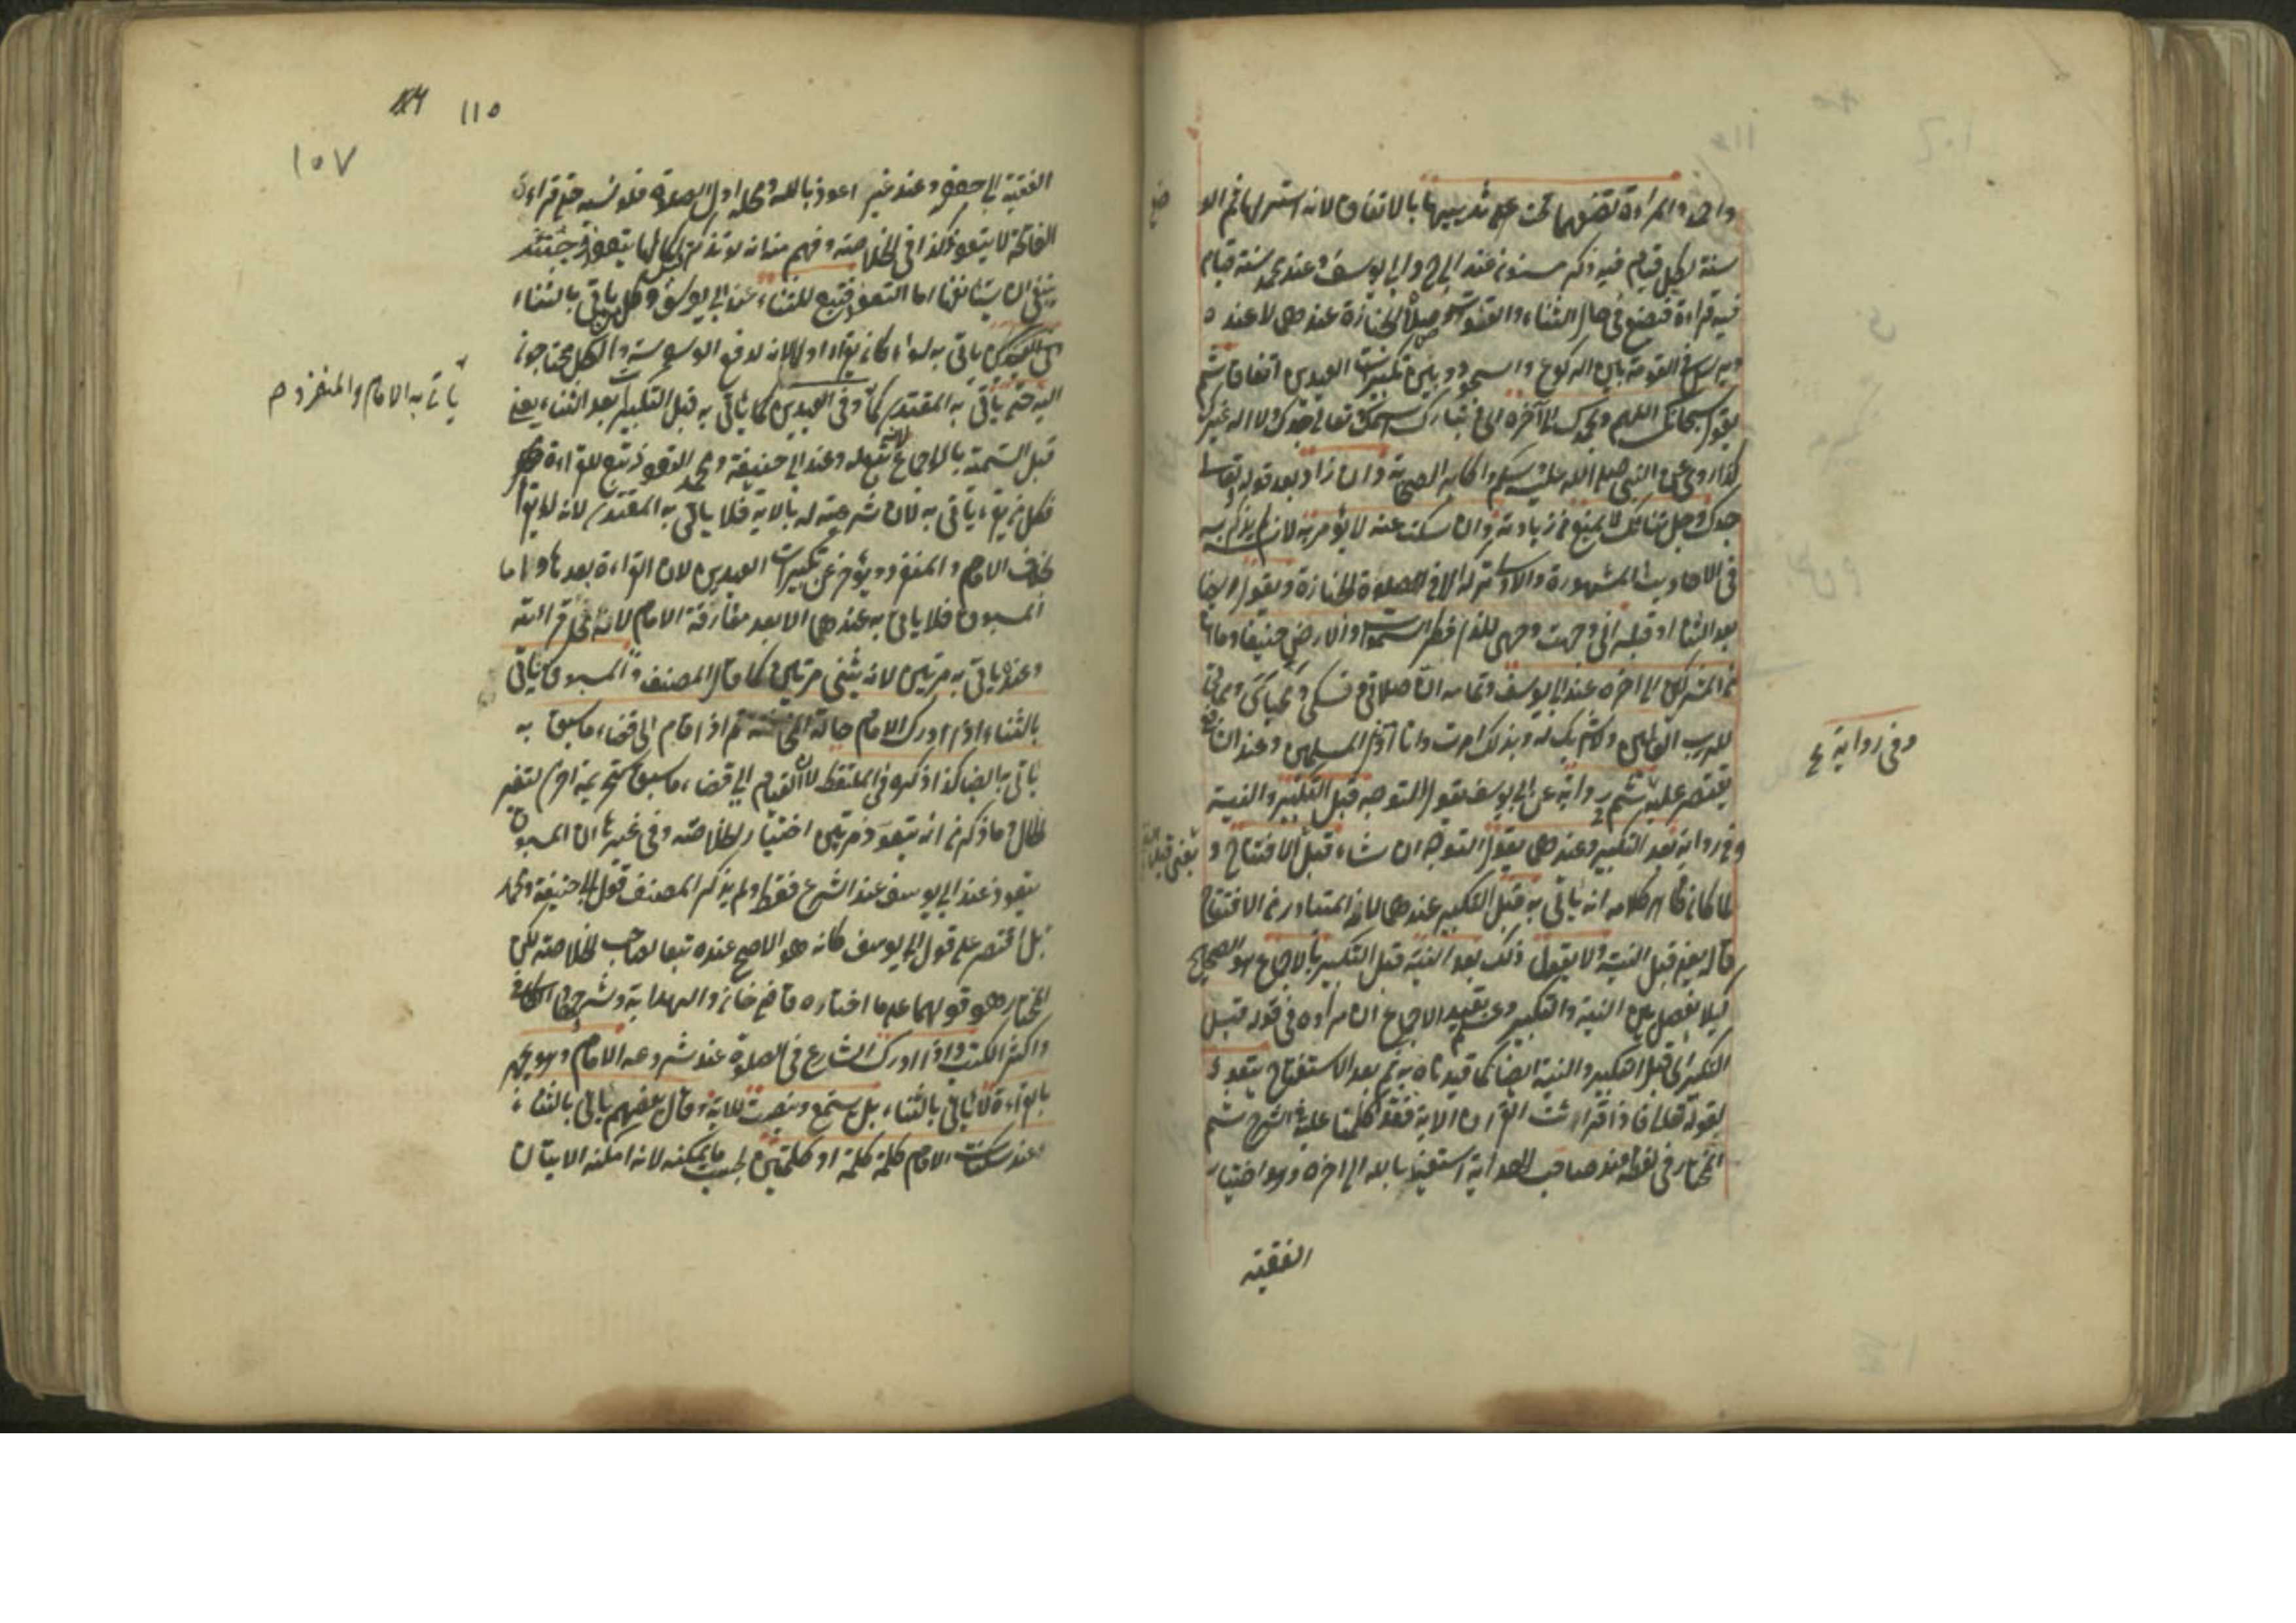 واحد والمراءة تضعهما تحت على ثدييها بالاتفاق لانه استر لها ثم الو
ضع
سنة لكل قيام فيه ذكر مسنون عند ابى ح وابى يوسف وعند محمد سنة قيام
فيه قراءة فيضع فى حال الثناء والقنوت وصلاة الجنازة عندهما لا عنده
ويرسل فى القومة بين الركوع والسجود وبين تكبيرات العيدين اتفاقا ثم
يقول سبحانك اللهم وبحمدك الى آخره اى وتبارك اسمك وتعالى جدك ولا اله غيرك
كذا روى عن النبى صلى الله عليه وسلم واكابر الصحابة وان زاد بعد قوله تعالى
جدك وجل ثناؤك لا يمنع من زيادته وان سكت عنه لا يؤمر به لانه لم يذكر به
فى الاحاديث المشهورة والاولى تركه الا فى الصلوة الجنازة ويقول ايضا
بعد الثناء او قبله انى وجهت وجهى للذى فطر السموات والارض حنيفا وما انا
من المشركين الى اخره عند ابى يوسف وتمامه ان صلاتى ونسكى ومحياى ومماتى
لله رب العالمين لا شريك له وبذلك امرت وانا اول المسلمين وعند الثانى
وفى رواية ع
يقتصر عليه ثم رواية عن ابى يوسف يقول التوجه قبل التكبير والنية
وفى رواية بعد التكبير وعندهما يقول التوجه ان شاء قبل الافتتاح و
يعنى قبل النية
لما كان ظاهر كلامه انه ياتى به قبل التكبير عندهما لانه المتبادر من الافتتاح
قال يعنى قبل النية ولا يقول ذلك بعد النية قبل التكبير بالاجماع هو الصحيح
كيلا يفصل بين النية والتكبير وعلم بتقييد الاجماع ان مراده فى قوله قبل
التكبير اى قبل التكبير والنية ايضا كما قيدناه به ثم بعد الاستفتاح يتعوذ
لقوله تعالى فاذا قرات القران الاية فقد تكلمنا عليه فى الشرح ثم
المختار فى لفظه عند صاحب الهداية استعيذ بالله الى اخره وهو اختيار
الفقيه
١١٥
١٠٧
الفقيه ابى جعفر وعند غيره اعوذ بالله ومحله اول الصلوة فلو نسيه حتى قراء
الفاتحة لا يتعوذ كذا فى الخلاصة وفهم منه انه لو تذكر قبل اكمالها يتعوذ وحينئذ
ينبغى ان يستانفها اما التعوذ فتبع للثناء عند ابى يوسف وكل من ياتى بالثناء
ياتى به سواء كان يقراء او لا لانه لدفع الوسوسة والكل محتاجون
ياتى به الامام والمنفرد م
اليه حتى ياتى به المقتدى كما وفى العيدين كما ياتى به قبل التكبيرات بعد الثناء يعنى
قبل التسمية بالاجماع لانه تبع له وعند ابى حنيفة ومحمد التعوذ تبع للقراءة
فكل من يقراء ياتى به لان شرعيته له بالاية فلا ياتى به المقتدى لانه لا يقرا
بخلاف الامام والمنفرد ويؤخر عن تكبيرات العيدين لان القراءة بعدها واما
المسبوق فلا ياتى به عندهما الا بعد مفارقة الامام لانه محل قرائته
وعنده ياتى به مرتين لانه يثنى مرتين كما قال المصنف والمسبوق ياتى
بالثناء اذا ادرك الامام حالة المخافتة ثم اذا قام الى قضاء ما سبق به
ياتى به ايضا كذا ذكره فى الملتقط لان القيام الى قضاء ما سبق كتحريمة اخرى لتغير
الحال وما ذكر من انه يتعوذ مرتين اختيار الخلاصة وفى غيرها ان المسبوق
يتعوذ عند ابى يوسف عند الشرع فقط ولم يذكر المصنف قول ابى حنيفة ومحمد
بل اقتصر على قول ابى يوسف كانه هو الاصح عنده تبعا لصاحب الخلاصة لكن
المختار هو قولهما على ما اختاره قاضى خان والهداية وشروحها والكافى
واكثر الكتب واذا ادرك الشارع فى الصلوة عند شروعه الامام وهو يجهر
بالقراءة لا ياتى بالثناء بل يستمع وينصت للاية وقال بعضهم ياتى بالثناء
عند سكتات الامام كلمة كلمة او كلمتين بحسب ما يمكنه لانه امكنه الاتيان